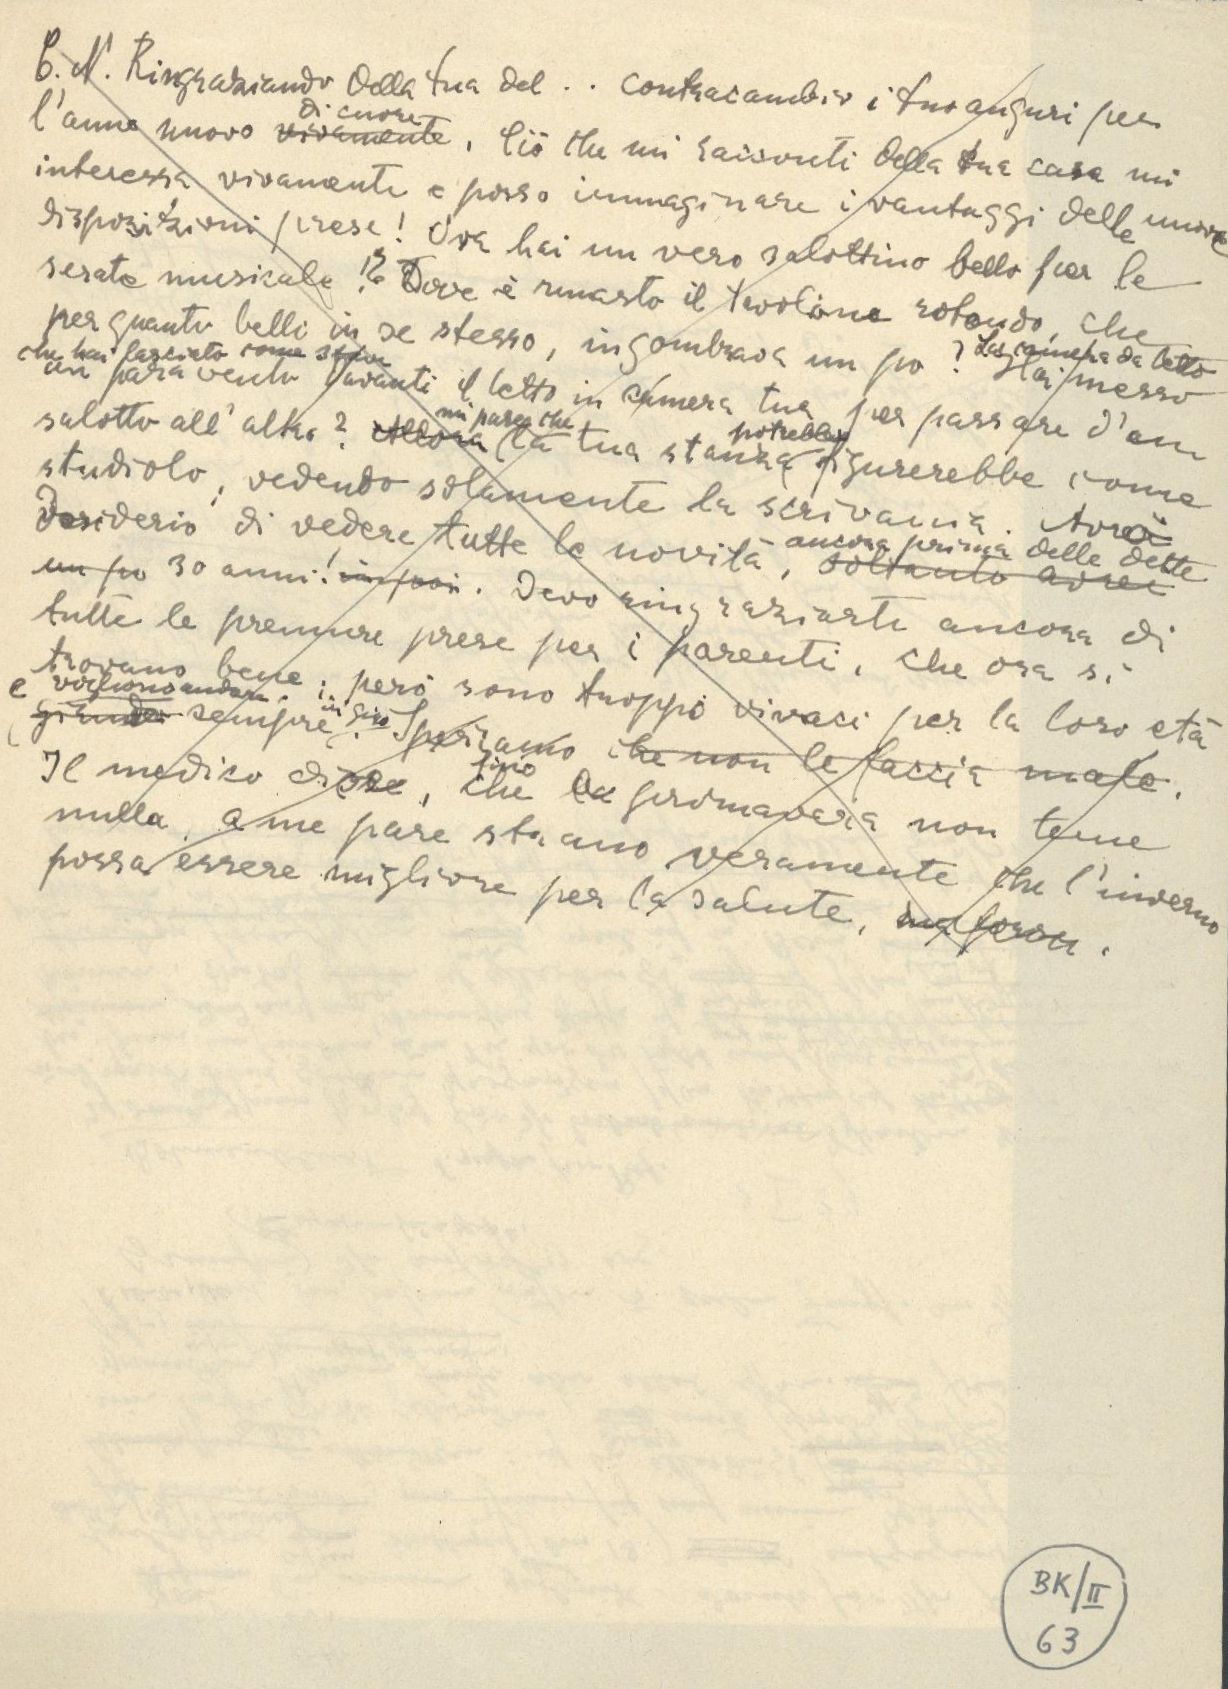 C. N. Ringraziando della tua del . . contracambio i tuoi auguri per
di cuore
l'anno nuovo vivamente. Ciò che mi racconti della tua casa mi
interessa vivamente e posso immaginare i vantaggi delle nuove
disposizioni prese! Ora hai un vero salottino bello per le
serate musicale!? Dove è rimasto il tavolino rotondo, che
per quanto belli in se stesso, ingombrava un po? Hai messo
che hai lasciato come
la camera da letto
un paravento davanti il letto in camera tua per passare d'un
mi pare che
potrebbe
salotto all'altro? Allora la tua stanza figurerebbe come
studiolo, vedendo solamente la scrivania. Avrei
desiderio di vedere tutte le novità, soltanto avrei
ancora prima delle dette
un po 30 anni! in poi. Devo ringraziarti ancora di
tutte le premure prese per i parenti, che ora si
trovano bene; però sono troppo vivaci per la loro età
e vogliono andare
in giro
sempre. Speriamo che non le faccia male.
fino
Il medico dice, che la primavera non teme
nulla, a me pare strano veramente che l'inverno
possa essere migliore per la salute, ma forse.
BK/II
63